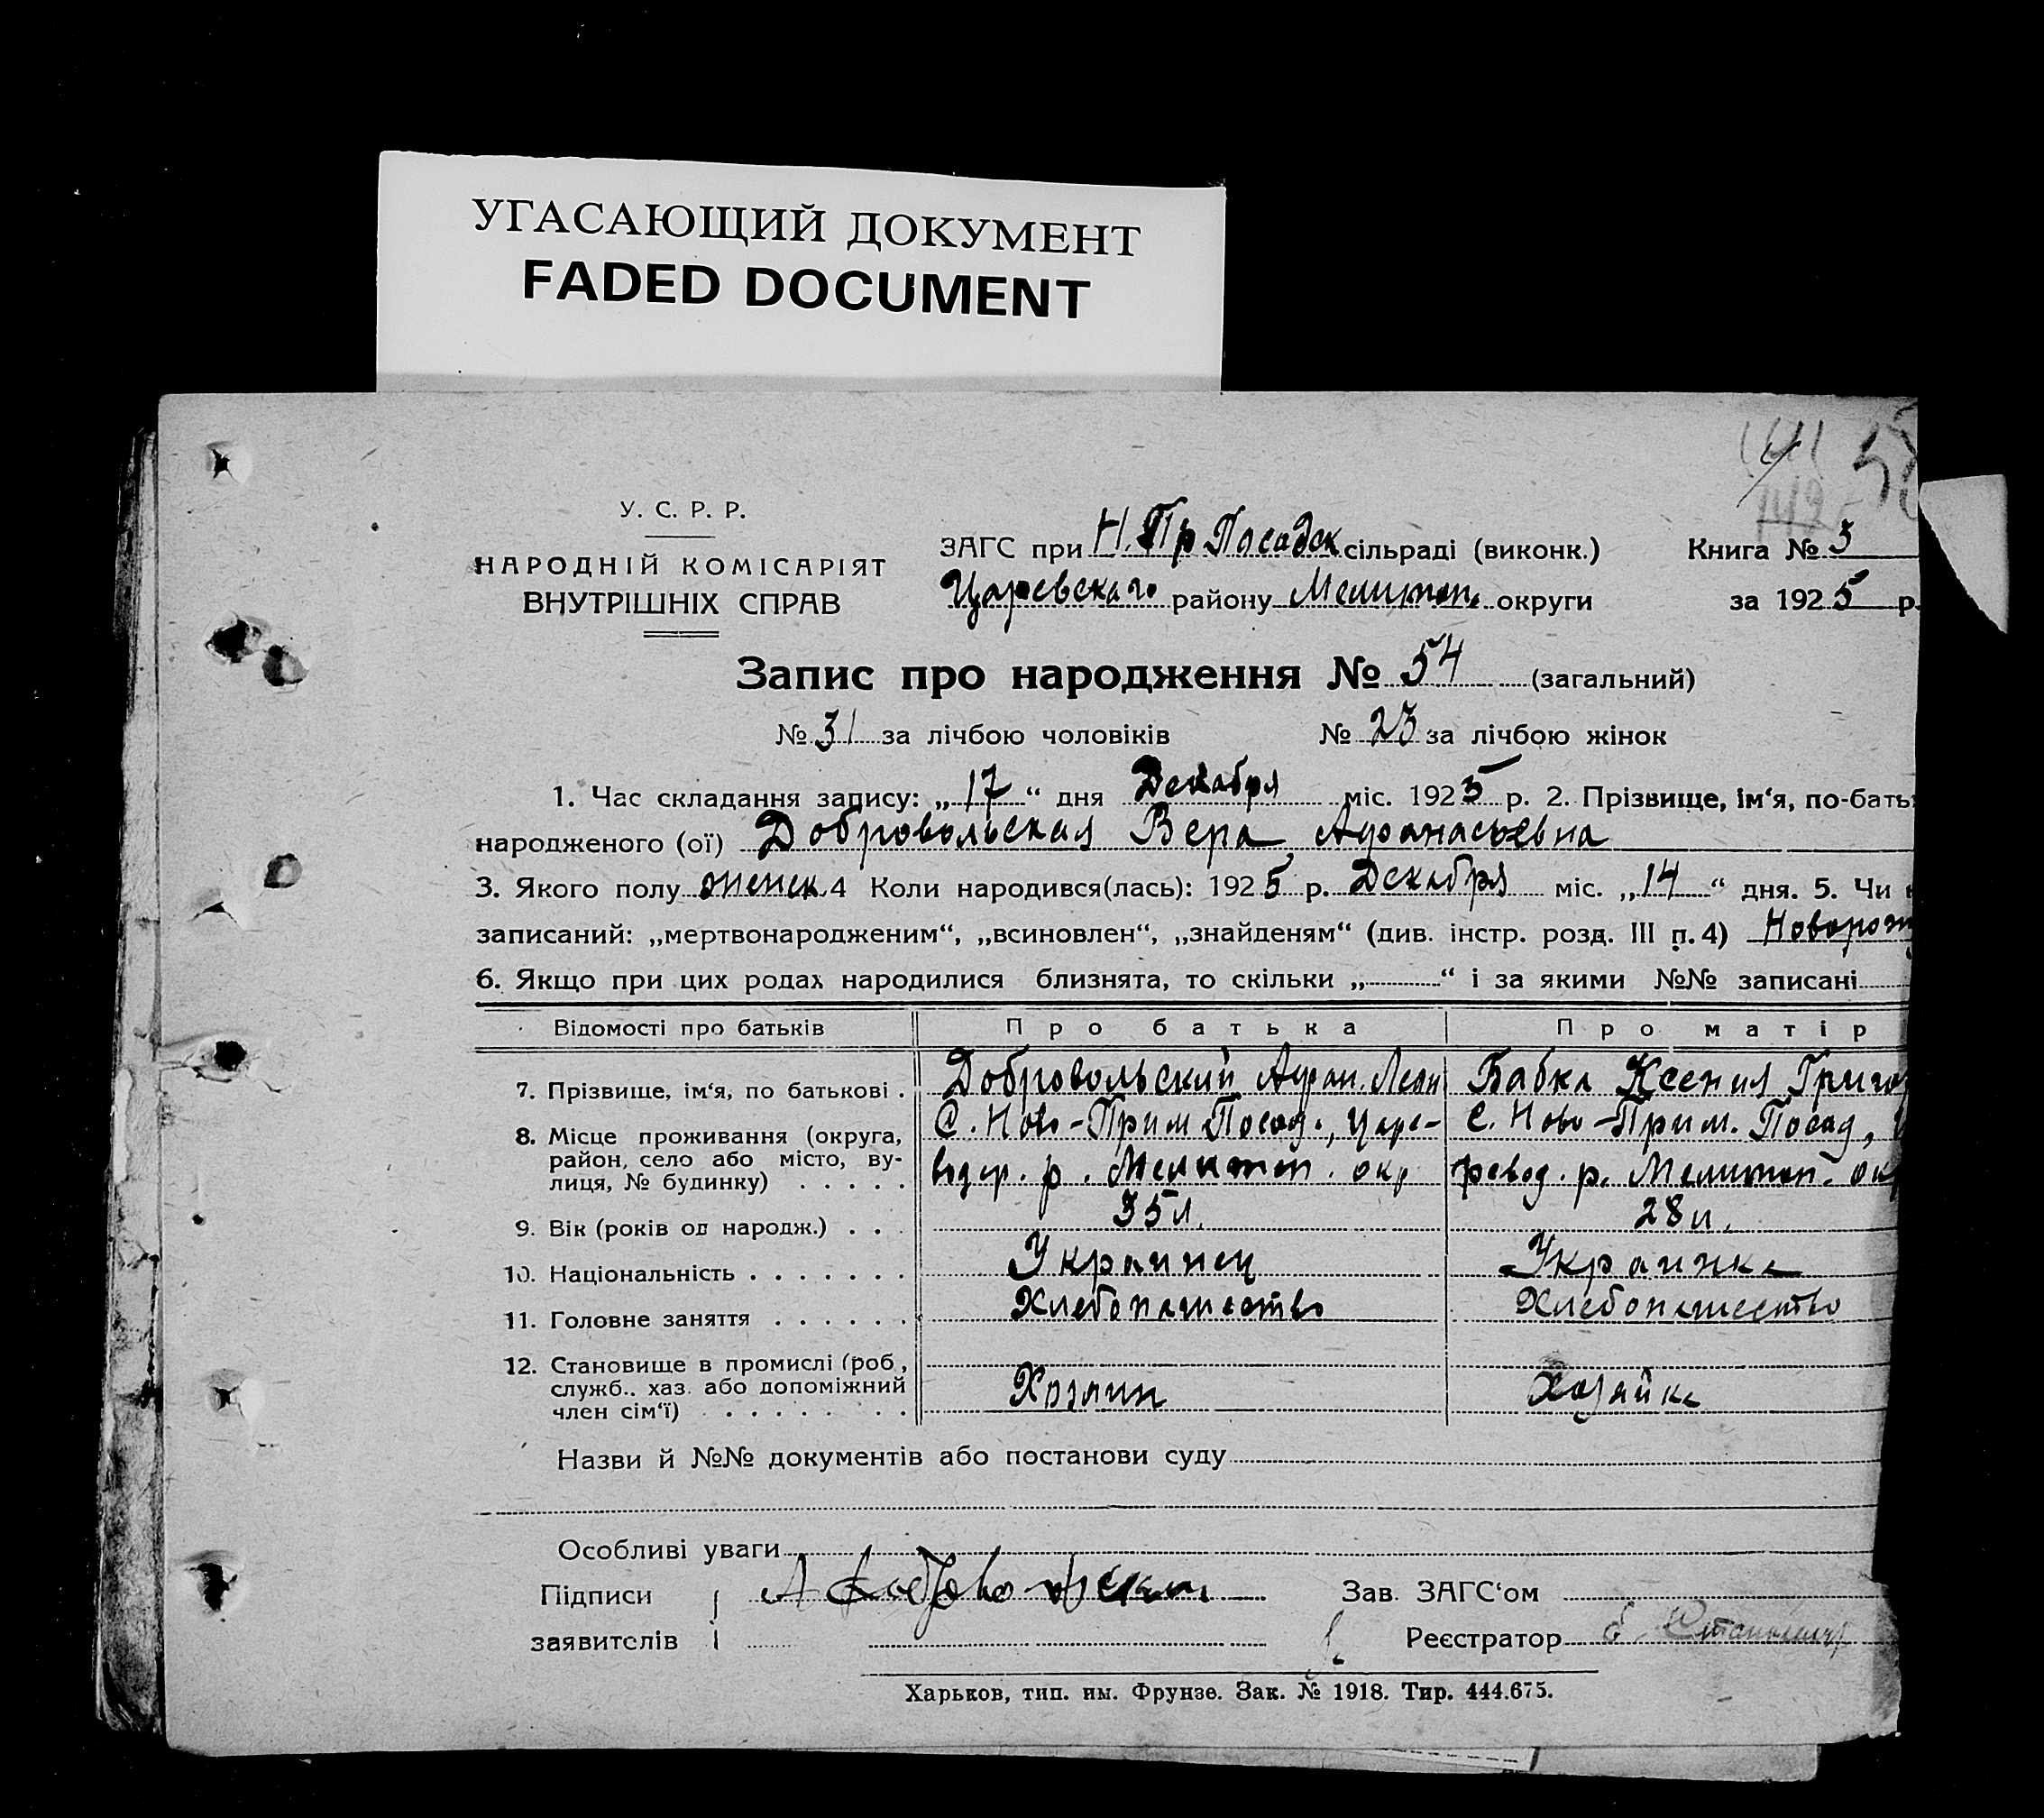 УГАСАЮЩИЙ ДОКУМЕНТ
FADED DOCUMENT
У. С. Р. Р.
НАРОДНІЙ КОМІСАРІЯТ
ВНУТРІШНІХ СПРАВ
ЗАГС при Н. Пр Посадск сільраді (виконк.) Книга № 3
Царевскаго району Мелитоп. округи за 1925 р.
Запис про народження № 54 (загальний)
№ 31 за лічбою чоловіків № 23 за лічбою жінок
1. Час складання запису: „17“ дня Декабря міс. 1925 р. 2. Прізвище, ім‘я, по-бать
народженого (ої) Добровольская Вера Афанасьевна
3. Якого полу женск 4 Коли народився(лась): 1925 р. Декабря міс. „14“ дня. 5. Чи
записаний: „мертвонародженим“, „всиновлен“, „знайденям“ (див. інстр. розд. III п. 4) Новорож
6. Якщо при цих родах народилися близнята, то скільки „ “ і за якими №№ записані
Відомості про батьків Про батька Про матір
7. Прізвище, ім‘я, по батькові . Добровольский Афан. Леон Бабка Ксения Григо
8. Місце проживання (округа, С. Ново-Прим Посад., Царе- С. Ново-Прим. Посад,
район, село або місто, ву- р. Мелитоп. окр ревод. р. Мелитоп. ок
лиця, № будинку) . . . . .
9. Вік (років од народж.) . . . 35 л. 28 л.
10. Національність . . . . . . . Украинец Украинка
11. Головне заняття . . . . . . Хлебопашество Хлебопашество
12. Становище в промислі (роб.,
служб.. хаз. або допоміжний Хозяин Хозяйка
член сім‘ї) . . . . . . . .
Назви й №№ документів або постанови суду
Особливі уваги
Підписи А Добровольский Зав. ЗАГС‘ом
заявителів Реєстратор
Харьков, тип. им. Фрунзе. Зак. № 1918. Тир. 444.675.